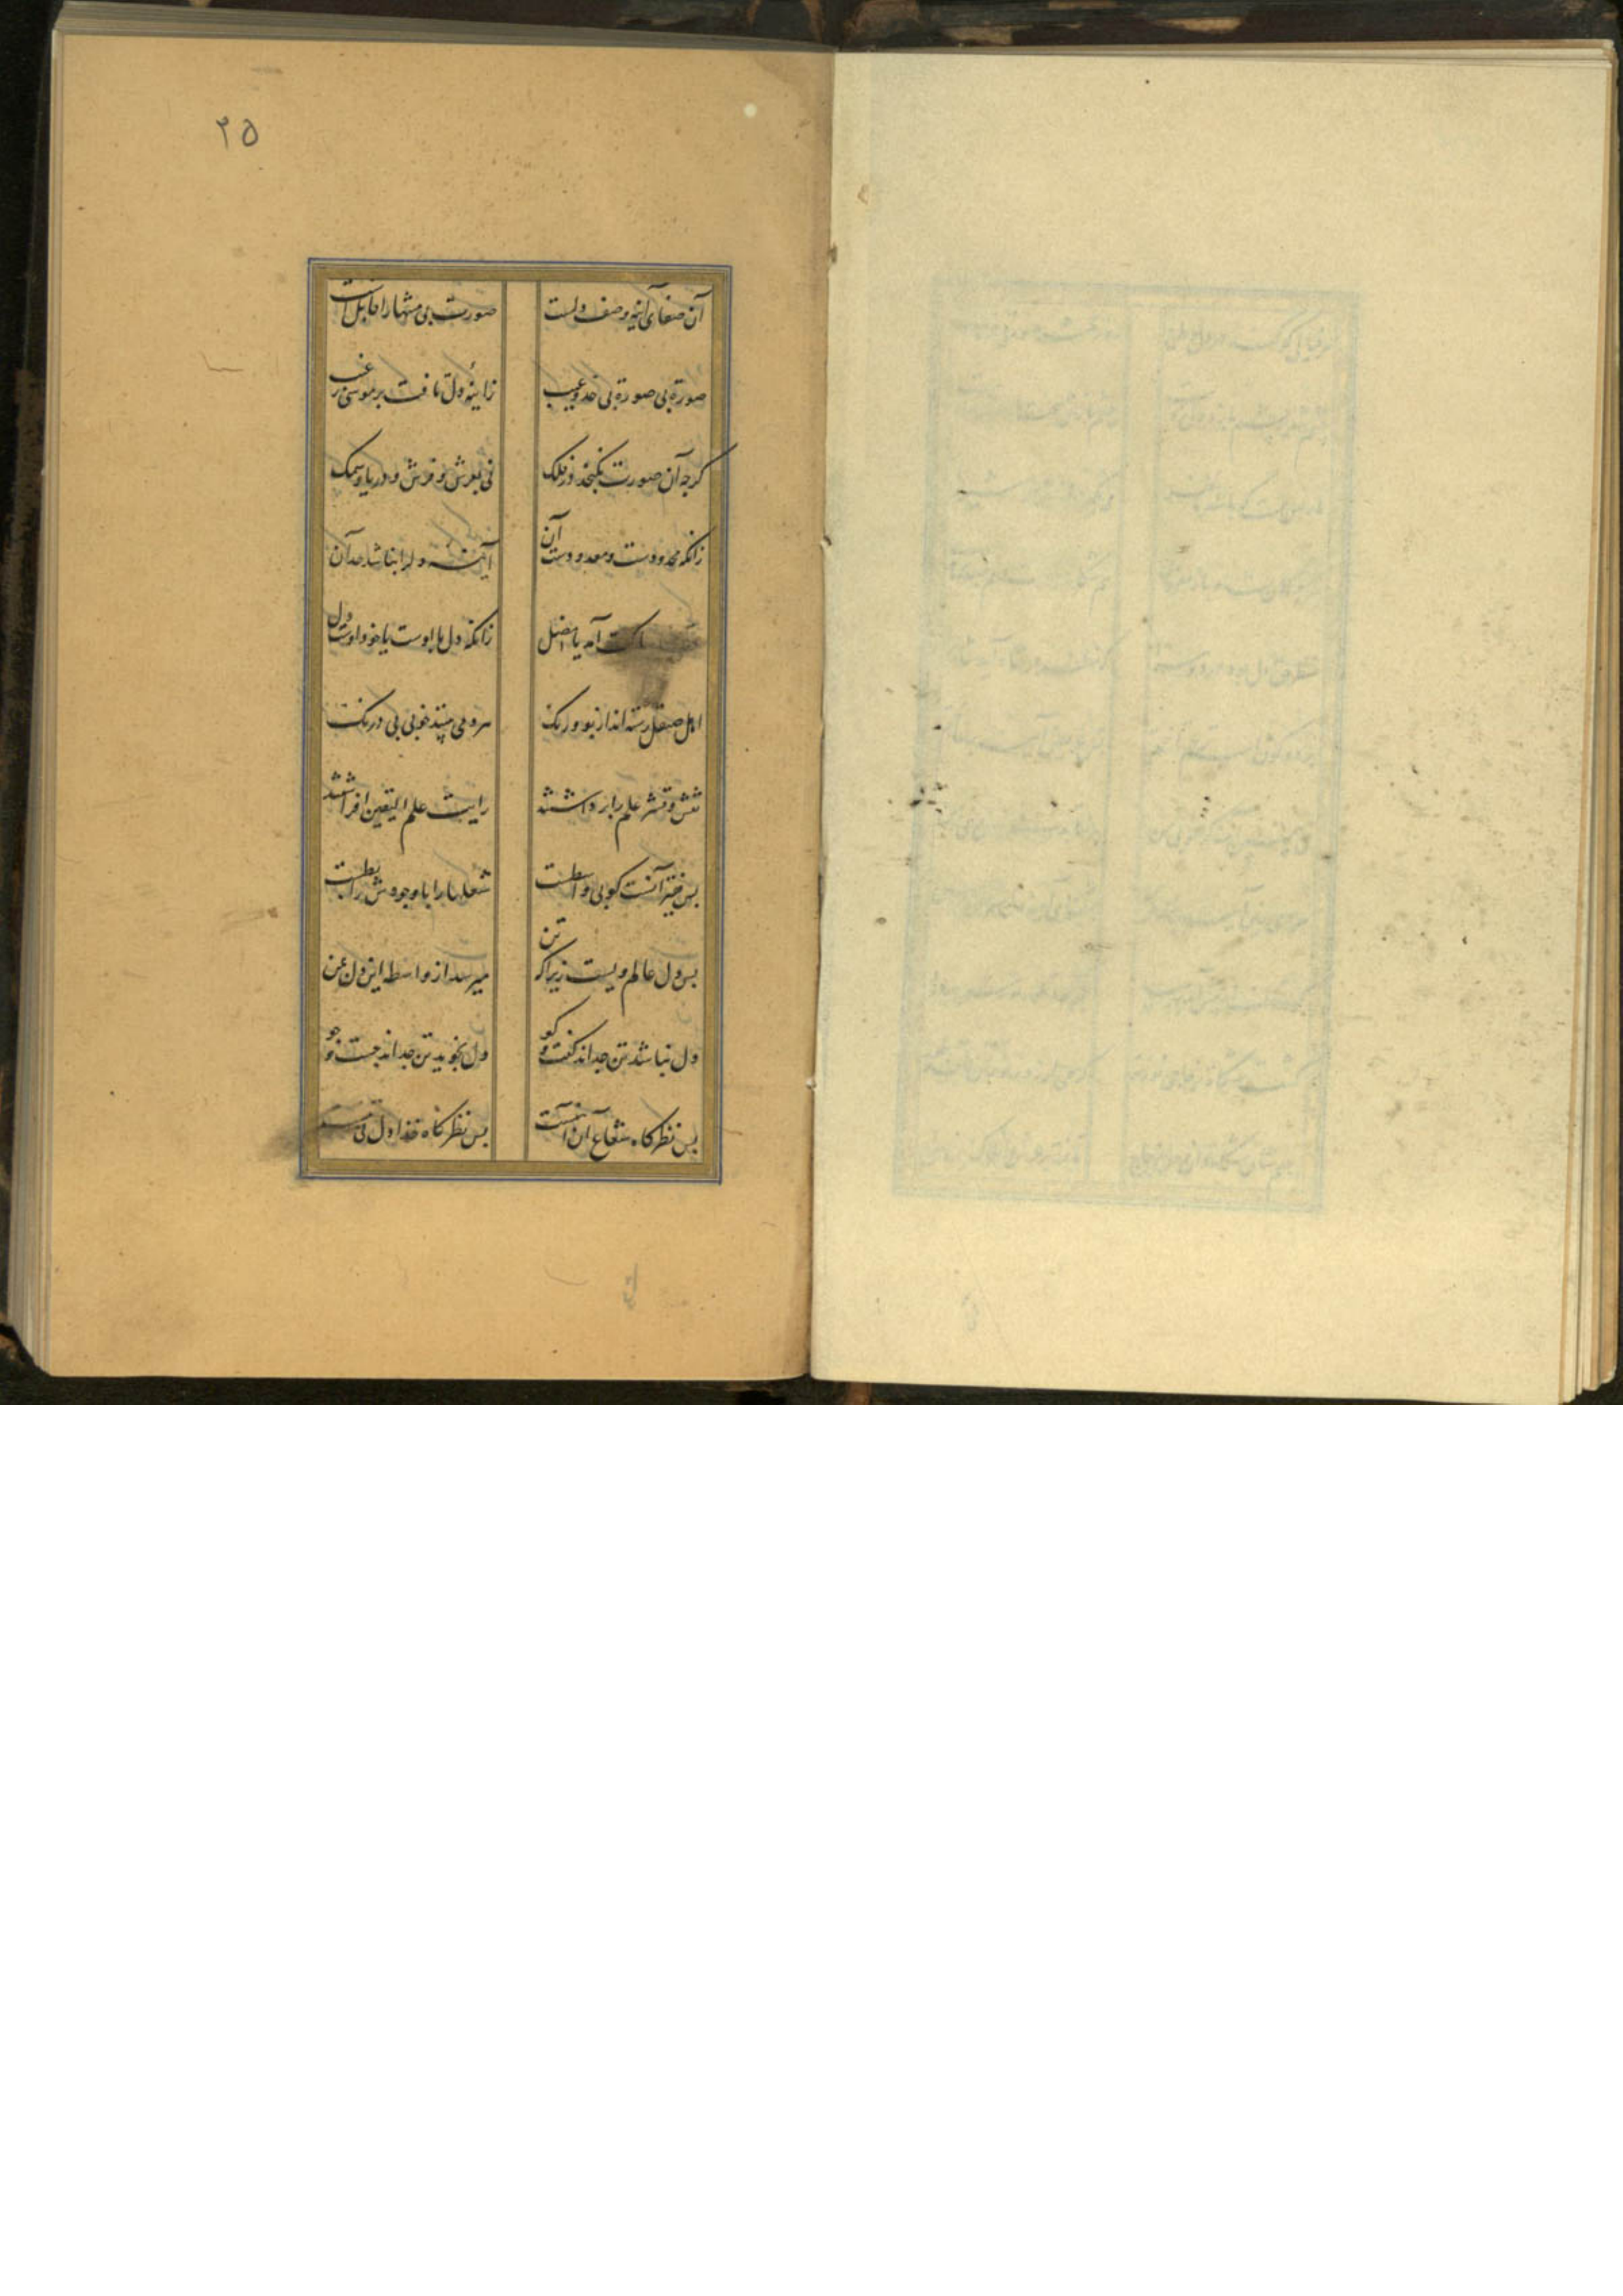 ۲۵
آن صفای آینه وصف دلست صورت بی منتها را قابل است
صورة بی صورة بی حد و عیب ز اینهٔ دل تافت بر موسی ز غیب
کرجه آن صورت نکنجد در فلک نی بعرش و فرش و دریا و سمک
زانکه محدودست و معدودست آن آینه دل را نباشد حد آن
ساکت آمد یا مضل زانکه دل با اوست یا خود اوست دل
اهل صیقل رسته اند از بو و رنک هر دمی بینند خوبی بی درنک
نقش و قشر علم را برداشتند رایت علم الیقین افراشتند
بس فقیر آنست کو بی واسطست شعلها را با وجودش رابطست
بس دل عالم ویست زیرا که تن میرسد از واسطه این دل بفن
دل نباشد تن جداند کفت و کو دل نجوید تن جداند جست و جو
بس نظرکاه شعاع آن آهنست بس نظرکاه خدا دل نی تنست